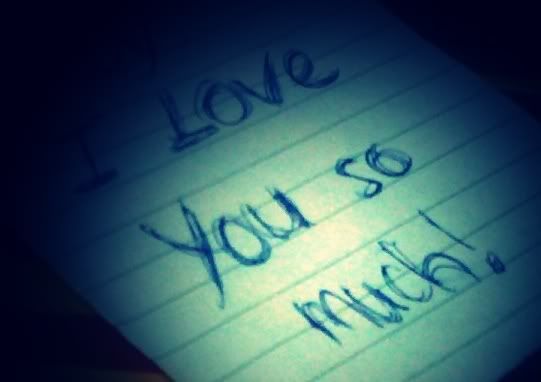 I Love
You so
much!